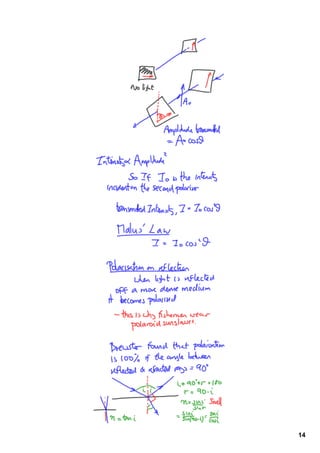 No light
A₀
Amplitude transmitted
= A₀ cosθ
Intensity ∝ Amplitude²
So If I₀ is the intensity
incident on the second polariser
transmitted Intensity, I = I₀ cos²θ
Malus' Law
I = I₀ cos²θ
Polarisation on reflection
When light is reflected
off a more dense medium
it becomes polarised
- this is why fishermen wear
polaroid sunglasses.
Brewster found that polarisation
is 100% if the angle between
reflected & refracted rays = 90°
i + 90° + r = 180
r = 90 - i
n = sin i / sin r Snell
= sin i / sin(90-i) = sin i / cos i
n = tan i
14